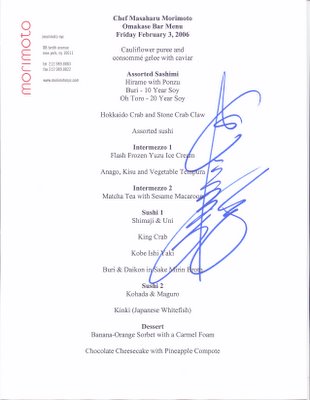 morimoto
morimoto nyc
88 tenth avenue
new york, ny 10011
tel 212 989.8883
fax 212 989.8822
Chef Masaharu Morimoto
Omakase Bar Menu
Friday February 3, 2006
Cauliflower puree and
consommé gelee with caviar
Assorted Sashimi
Hirame with Ponzu
Buri - 10 Year Soy
Oh Toro - 20 Year Soy
Hokkaido Crab and Stone Crab Claw
Assorted sushi
Intermezzo 1
Flash Frozen Yuzu Ice Cream
Anago, Kisu and Vegetable Tempura
Intermezzo 2
Matcha Tea with Sesame Macaroon
Sushi 1
Shimaji & Uni
King Crab
Kobe Ishi Yaki
Buri & Daikon in Sake Mirin Broth
Sushi 2
Kohada & Maguro
Kinki (Japanese Whitefish)
Dessert
Banana-Orange Sorbet with a Carmel Foam
Chocolate Cheesecake with Pineapple Compote